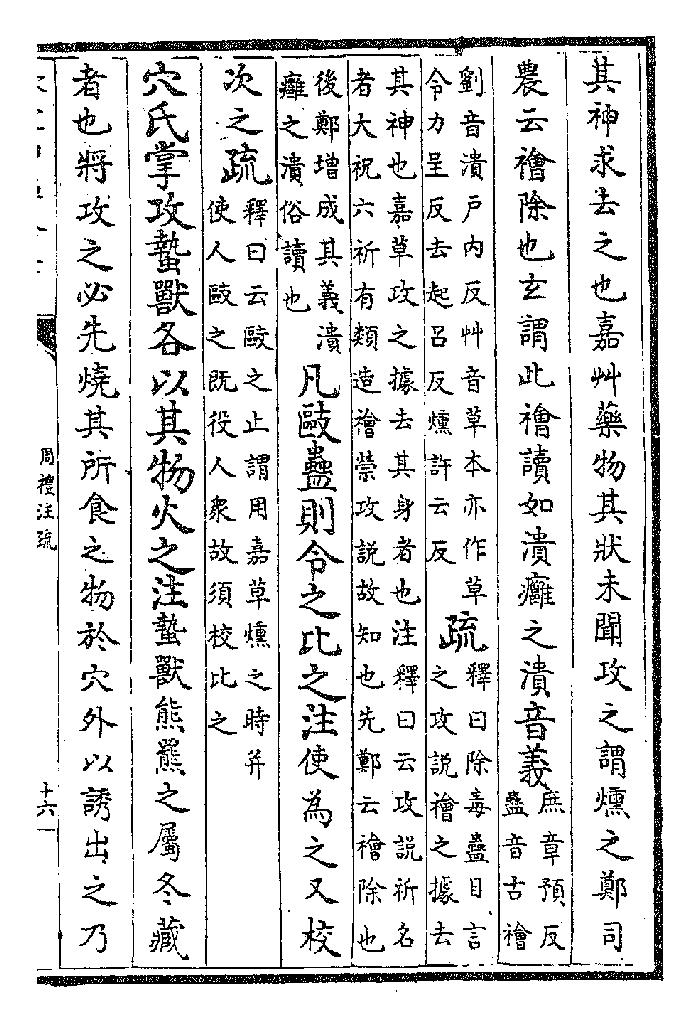 其神求去之也嘉艸藥物其狀未聞攻之謂燻之鄭司
農云禬除也玄謂此禬讀如潰癰之潰音義
庶章預反
蠱音古禬
劉音潰戸内反艸音草本亦作草
令力呈反去起呂反燻許云反
疏
釋曰除毒蠱目言
之攻説禬之據去
其神也嘉草攻之據去其身者也注釋曰云攻説祈名
者大祝六祈有類造禬禜攻説故知也先鄭云禬除也
後鄭增成其義潰
癰之潰俗讀也
凡毆蠱則令之比之注使為之又校
次之疏
釋曰云毆之止謂用嘉草燻之時并
使人毆之既役人衆故須校比之
穴氏掌攻蟄獸各以其物火之注蟄獸熊羆之屬冬藏
者也將攻之必先燒其所食之物於穴外以誘出之乃
周禮注疏
十六